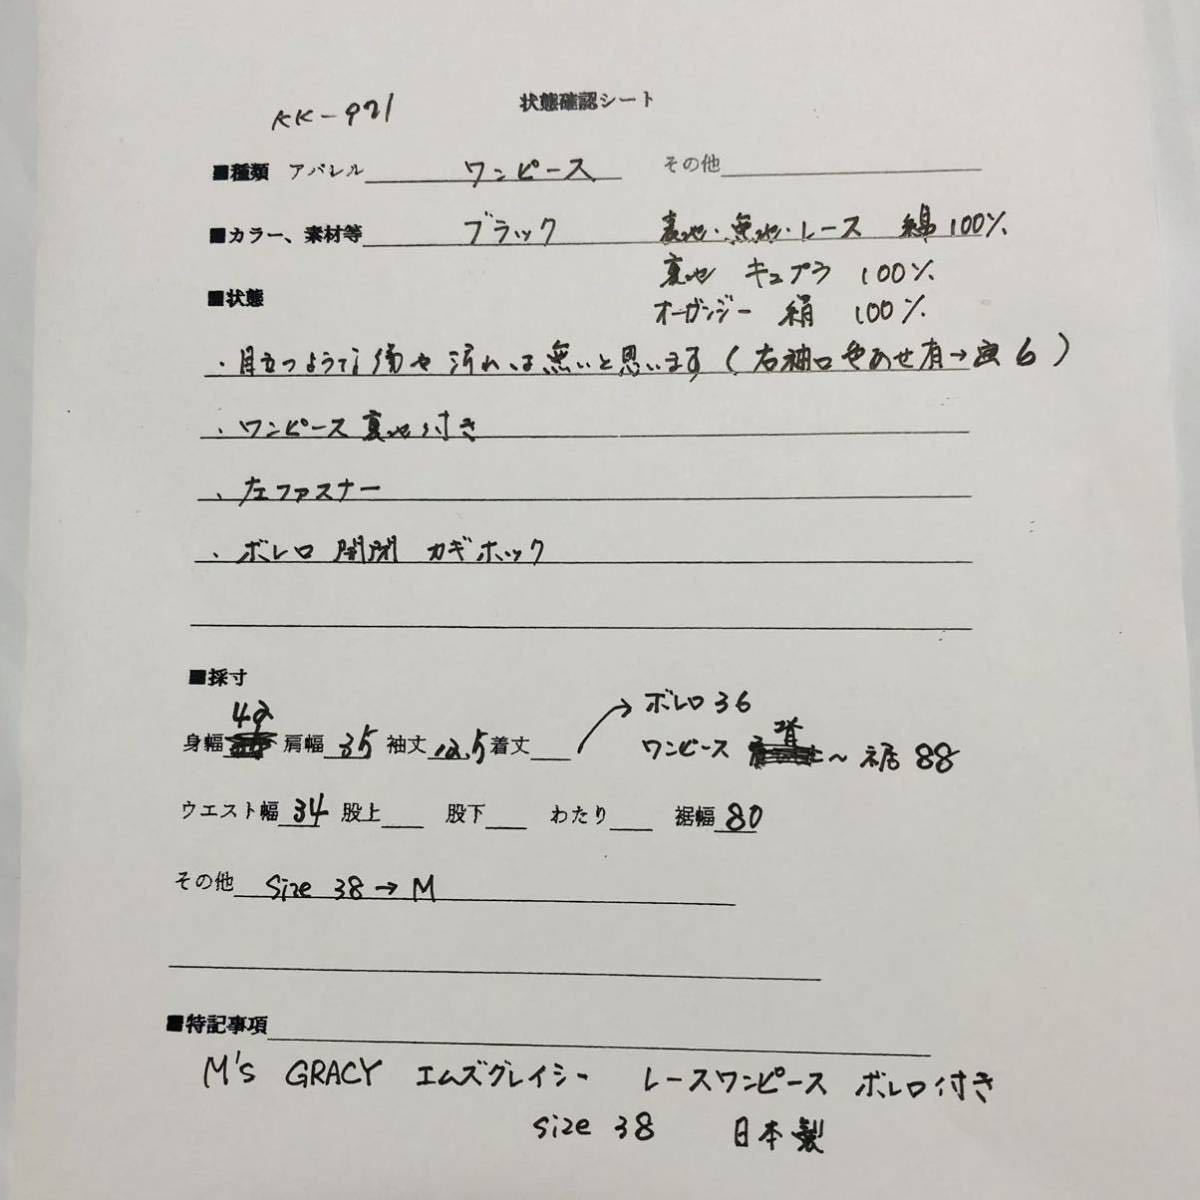 KK-921 状態確認シート
■種類 アパレル ワンピース その他
■カラー、素材等 ブラック 表地・無地・レース 綿100%
裏地 キュプラ 100%
■状態
オーガンジー 絹 100%
・目立つような傷や汚れは無いと思います(右袖口色あせ有→画6)
・ワンピース裏地付き
・左ファスナー
・ボレロ 開閉 カギホック
■採寸
42 ボレロ36
身幅 肩幅35 袖丈12.5着丈 ワンピース 背〜裾88
ウエスト幅34 股上 股下 わたり 裾幅80
その他 size 38→M
■特記事項
M's GRACY エムズグレイシー レースワンピース ボレロ付き
size 38 日本製